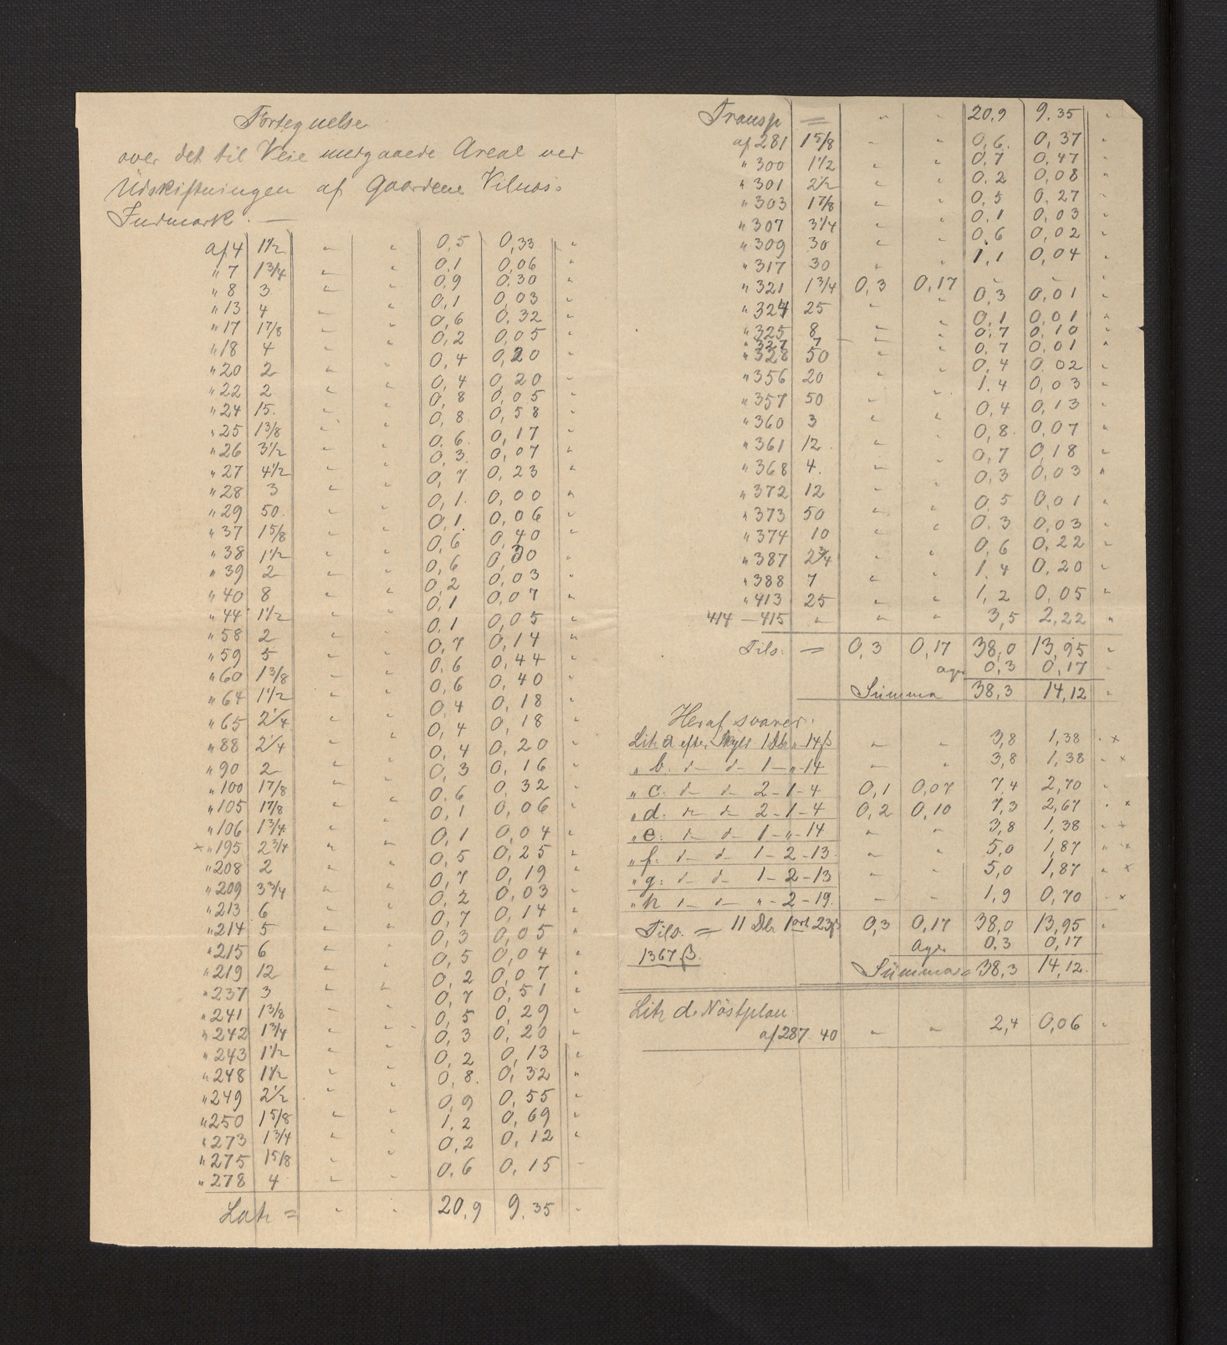 Fortegnelse
over det til Veie medgaaede Areal ved
Udskiftningen af Gaardene Vilnæs
Indmark. —
af 4 1½ " " 0,5 0,33 "
" 7 1¾ " " 0,1 0,06
" 8 3 " " 0,9 0,30
" 13 4 " " 0,1 0,03
" 17 1⅞ " " 0,6 0,32
" 18 4 " " 0,2 0,05
" 20 2 " " 0,4 0,20
" 22 2 " " 0,4 0,20
" 24 15. " " 0,8 0,05
" 25 1⅜ " " 0,8 0,58
" 26 3½ " " 0,6 0,17
" 27 4½ " " 0,3 0,07
" 28 3 " " 0,7 0,23
" 29 50. " " 0,1 0,00
" 37 1⅝ " " 0,1 0,06
" 38 1½ " " 0,6 0,40
" 39 2 " " 0,6 0,30
" 40 8 " " 0,2 0,03
" 44 1½ " " 0,1 0,07
" 58 2 " " 0,1 0,05
" 59 5 " " 0,7 0,14
" 60 1⅜ " " 0,6 0,44
" 64 1½ " " 0,6 0,40
" 65 2¼ " " 0,4 0,18
" 88 2¼ " " 0,4 0,18
" 90 2 " " 0,4 0,20
" 100 1⅞ " " 0,3 0,16
" 105 1⅞ " " 0,6 0,32
" 106 1¾ " " 0,1 0,06
× " 195 2¾ " " 0,1 0,04
" 208 2 " " 0,5 0,25
" 209 3¾ " " 0,7 0,19
" 213 6 " " 0,2 0,03
" 214 5 " " 0,7 0,14
" 215 6 " " 0,3 0,05
" 219 12 " " 0,5 0,04
" 237 3 " " 0,2 0,07
" 241 1⅜ " " 0,7 0,51
" 242 1¾ " " 0,5 0,29
" 243 1½ " " 0,3 0,20
" 248 1½ " " 0,2 0,13
" 249 2½ " " 0,8 0,32
" 250 1⅝ " " 0,9 0,55
" 273 1¾ " " 1,2 0,69
" 275 1⅝ " " 0,2 0,12
" 278 4 " " 0,6 0,15
Lat. = " " 20,9 9,35 "
Transp = " " 20,9 9,35 "
af 281 1⅝ " " 0,6 0,37 "
" 300 1½ " " 0,7 0,47
" 301 2½ " " 0,2 0,08
" 303 1⅞ " " 0,5 0,27
" 307 3¼ " " 0,1 0,03
" 309 30 " " 0,6 0,02
" 317 30 " " 1,1 0,04
" 321 1¾ 0,3 0,17 " "
" 324 25 " " 0,3 0,01
" 325 8 " " 0,1 0,01
" 327 7 " " 0,7 0,10
" 328 50 " " 0,7 0,01
" 356 20 " " 0,4 0,02
" 357 50 " " 1,4 0,03
" 360 3 " " 0,4 0,13
" 361 12 " " 0,8 0,07
" 368 4. " " 0,7 0,18
" 372 12 " " 0,3 0,03
" 373 50 " " 0,5 0,01
" 374 10 " " 0,3 0,03
" 387 2¾ " " 0,6 0,22
" 388 7 " " 1,4 0,20
" 413 25 " " 1,2 0,05
414 — 415 " " " 3,5 2,22 "
Tils. = 0,3 0,17 38,0 13,95
agr. 0,3 0,17
Summa 38,3 14,12
Heraf svarer:
Litr. a efter Skyld 1 Dlr. " - 14 β " " 3,8 1,38 " ×
" b. d— d— 1 — " - 14 " " 3,8 1,38 - ×
" c. d— d— 2 - 1 - 4 0,1 0,07 7,4 2,70
" d. d— d— 2 - 1 - 4 0,2 0,10 7,3 2,67 ×
" e. d— d— 1 - " - 14 " " 3,8 1,38 ×
" f. d— d— 1 - 2 - 13 " " 5,0 1,87 ×
" g. d— d— 1 - 2 - 13 " " 5,0 1,87 ×
" h d— d— " - 2 - 19. - - 1,9 0,70 ×
Tils. = 11 Dlr. 1 ort 23 β 0,3 0,17 38,0 13,95
agr. 0,3 0,17
1367 β.
Summa = 38,3 14,12
Litr. d. Nøstplan
af 287 40 " " 2,4 0,06 "